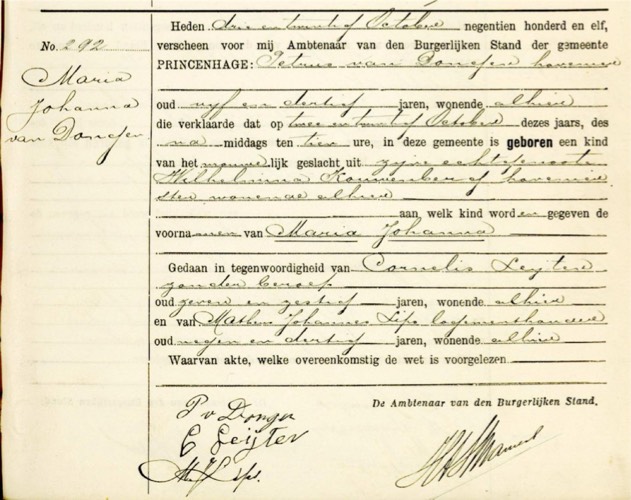 Heden drie en twintig October negentien honderd en elf,
verscheen voor mij Ambtenaar van den Burgerlijken Stand der gemeente
PRINCENHAGE: Petrus van Dongen hovenier
oud vijf en dertig jaren, wonende alhier
die verklaarde dat op twee en twintig October dezes jaars, des
na middags ten tien ure, in deze gemeente is geboren een kind
van het vrouwelijk geslacht uit zijne echtgenoote
Wilhelmina Kouwenberg hovenier
ster wonende alhier
aan, welk kind worden gegeven de
voornamen van Maria Johanna
Gedaan in tegenwoordigheid van Cornelis Leijten
zonder beroep
oud zeven en zestig jaren, wonende alhier
en van Matheus Johannes Lips logementhouder
oud negen en dertig jaren, wonende alhier
Waarvan akte, welke overeenkomstig de wet is voorgelezen
No. 292
Maria
Johanna
van Dongen
De Ambtenaar van den Burgerlijken Stand.
P v Dongen
C Leijten
M J Lips.